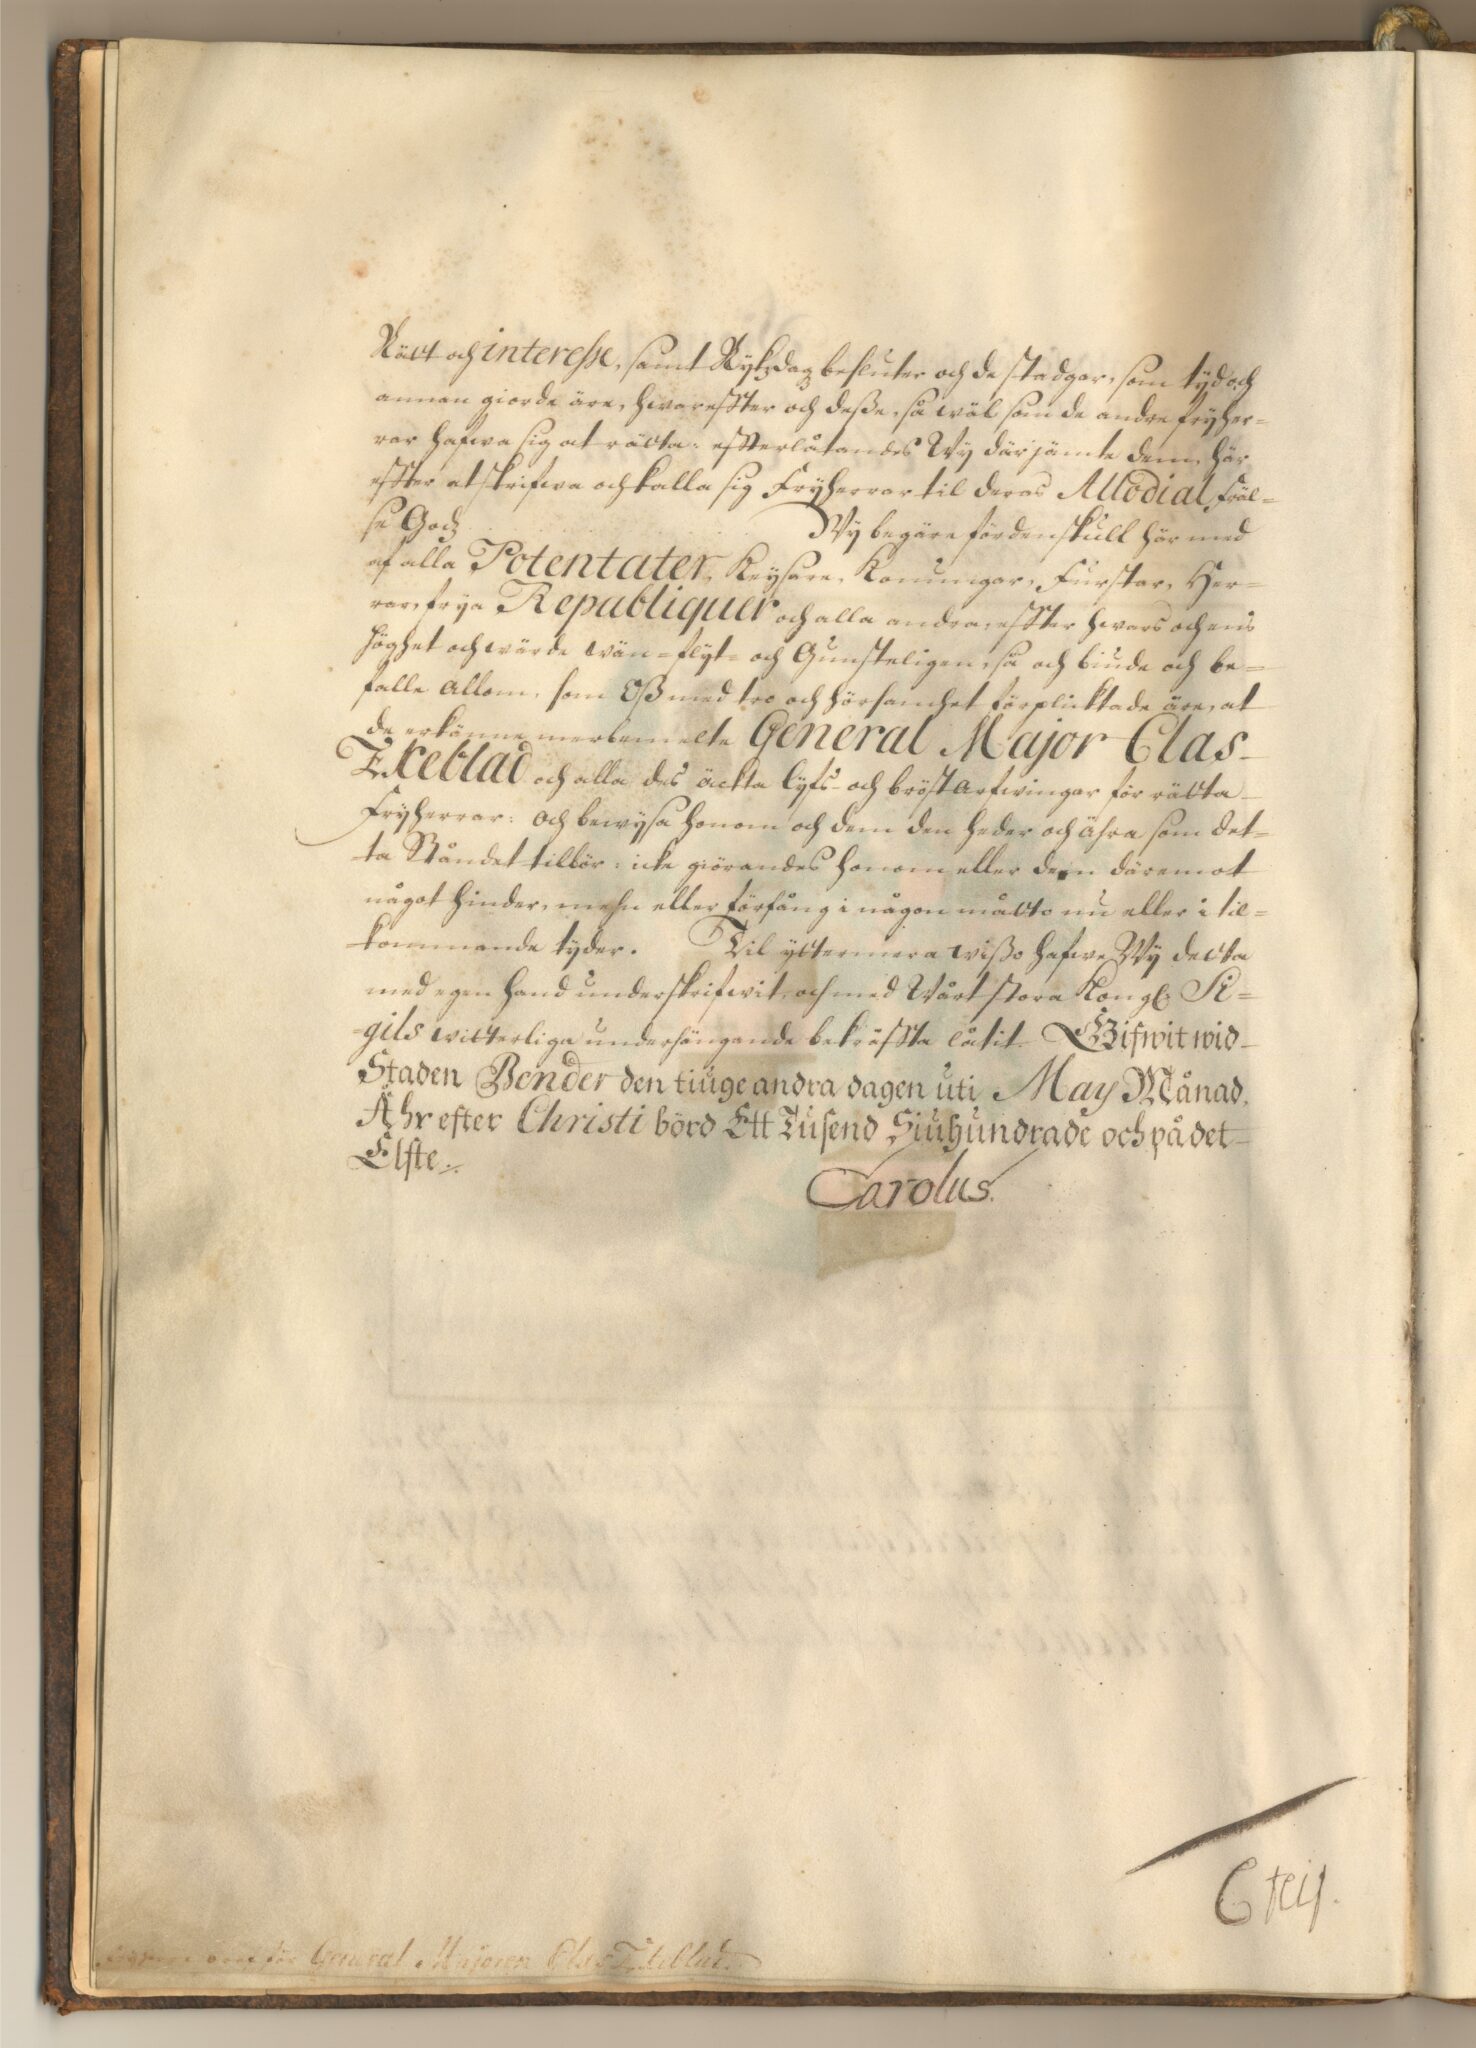 Rätt och interesse, samt Rykzdagz besluter och de stadgar, som tyd och
annan giorde äre, hwareffter och desse, så wäl som de andre fryher=
rar hafwa sig at rätta: effterlåtandes Wy därjämte dem, här
effter at skrifwa och kalla sig Fryherrar til deras Allodial Fräl=
se Godz. Wy begäre fördenskull här med
af alla Potentater, Keysare, Konungar, Furstar, Her=
rar, frya Republiquer och alla andra, effter hwars och ens
höghet och wärde wän= flyt= och Gunsteligen, så och biude och be=
falle Allom, som Oß med tro och hörsamhet förplicktade äre, at
de erkänne merbemelte General Major Clas
Ekeblad och alla des äckta lyfs- och bröst Arfwingar för rätta
Fryherrar: Och bewysa honom och dem den heder och ähra som det=
ta Ståndet tillhör: icke giörandes honom eller dem däremot
något hinder, mehn eller förfång i någon måtto nu eller i til=
kommande tyder. Til yttermera wißo hafwe Wy detta
med egen hand underskrifwit, och med Wårt stora Kongl: Si=
gils witterliga underhängande bekräffta låtit. Gifwit wid
Staden Bender den tiuge andra dagen uti May Månad,
Åhr efter Christi börd Ett Tusend Siuhundrade och på det
Elfte.
Carolus.
General Majoren Clas Ekeblad.